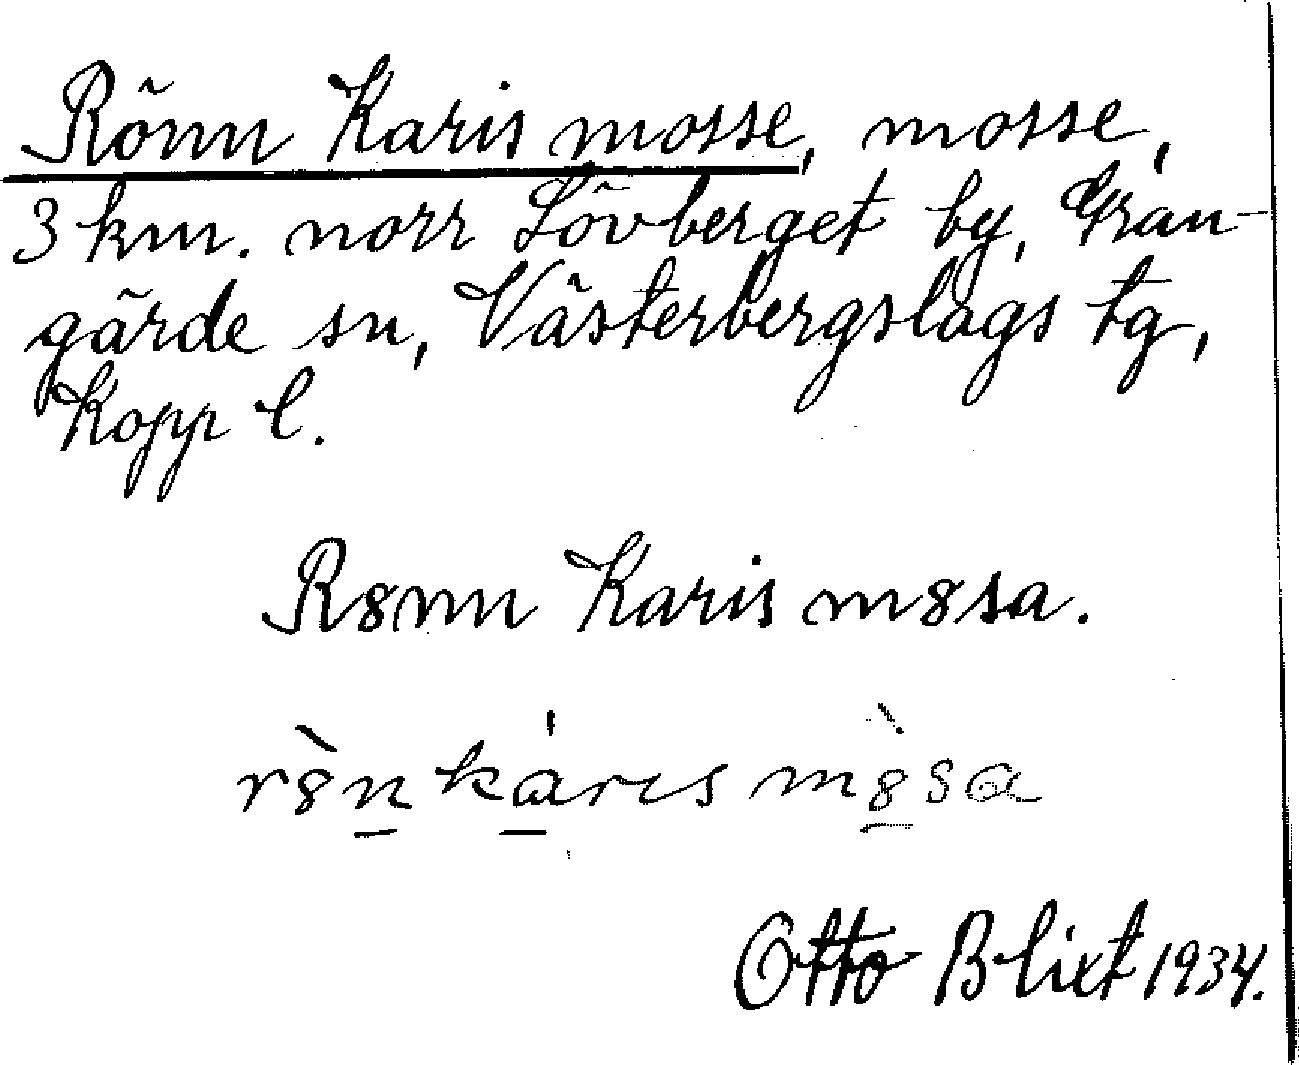 Rönn Karis mosse, mosse,
3 km. norr Lövberget by, Gran-
gärde sn, Västerbergslags tg,
Kopp l.
R8nn Karis m8sa.
r8̀n kárıs m8̀sa
Otto Blixt 1934.